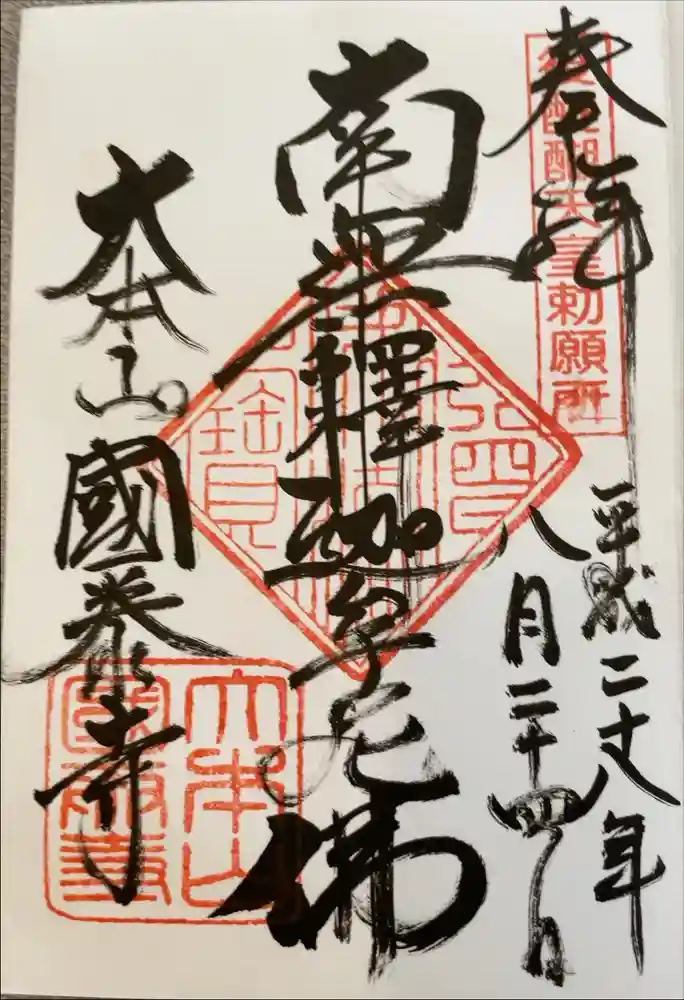 奉拝
後醍醐天皇勅願所
平成二 年
八月二十四日
南無釋迦牟尼佛
大本山國泰寺
大本山
國泰寺